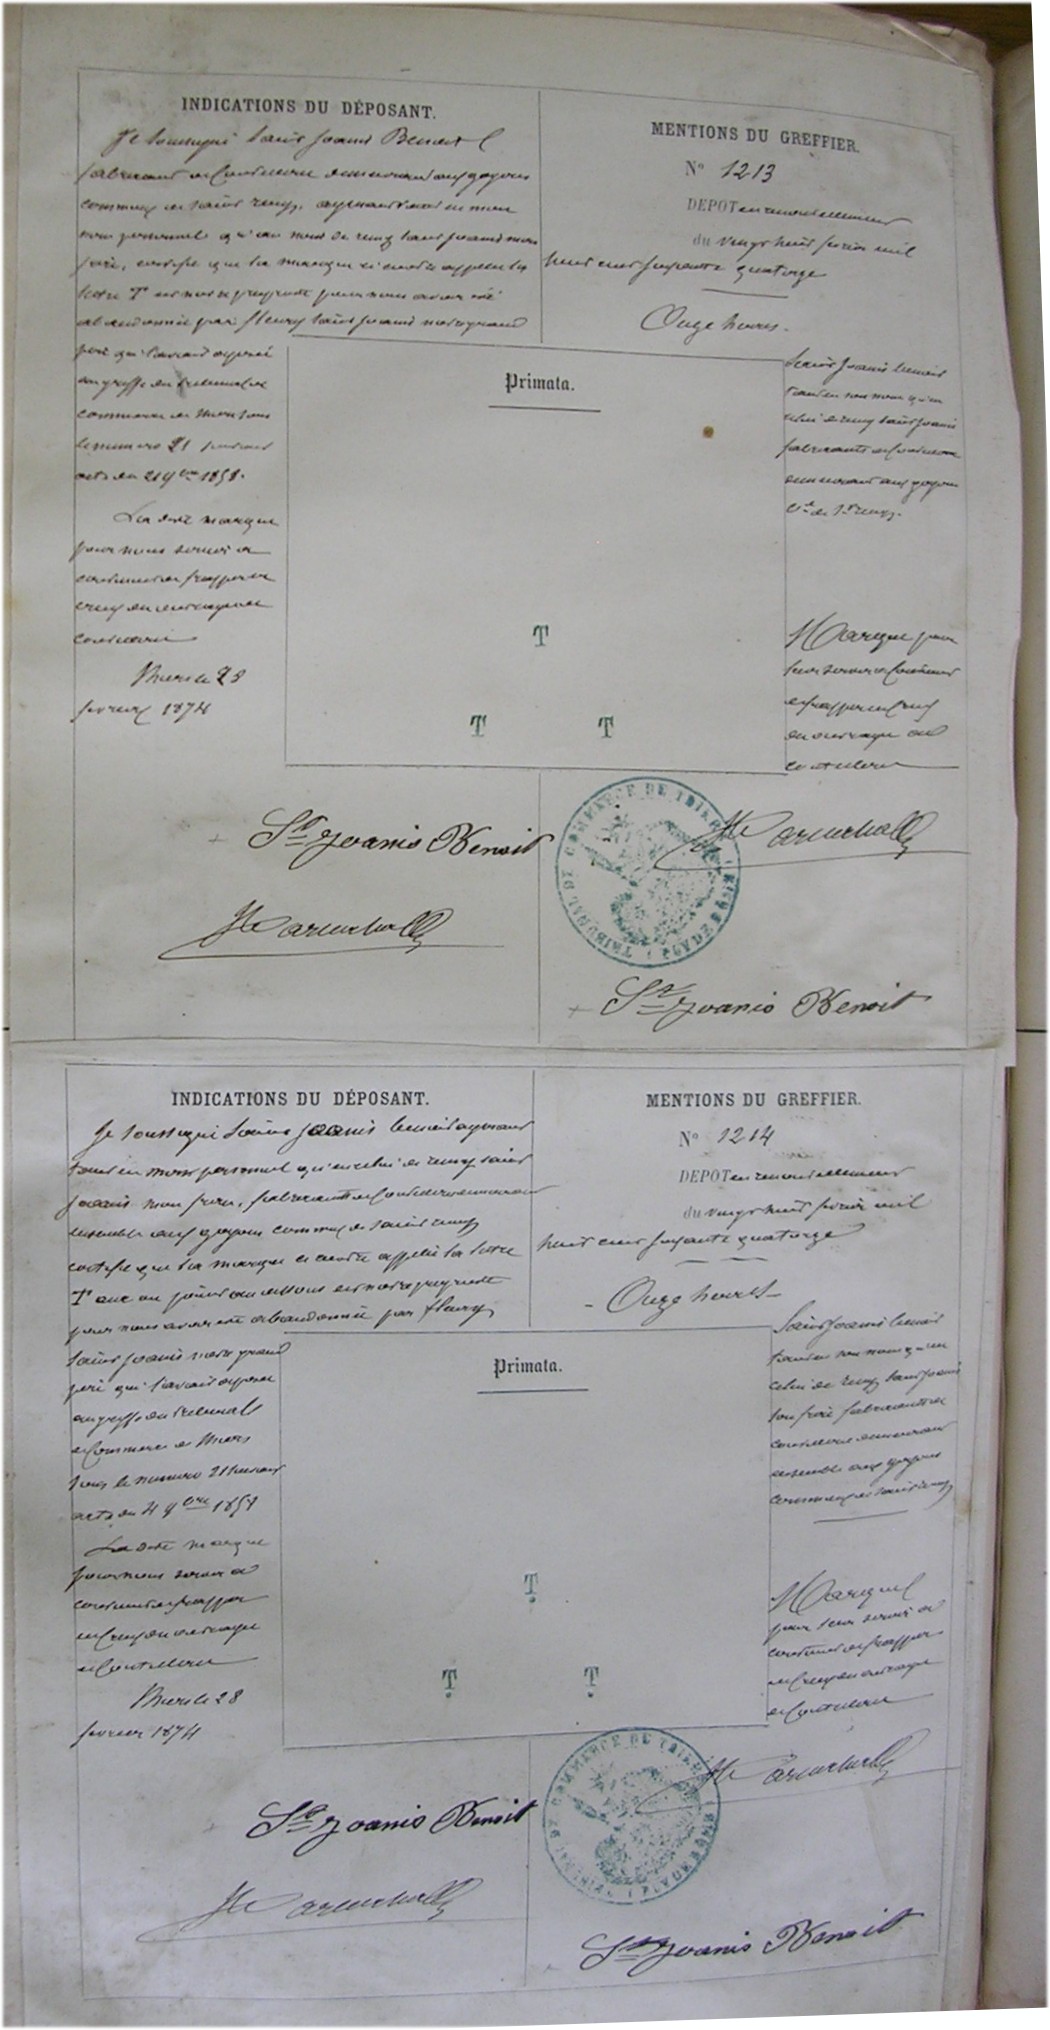 INDICATIONS DU DÉPOSANT.
Je soussigné Saint Joanis Benoit
fabricant de Coutellerie demeurant aux goyons
commune de Saint remy, agissant tant en mon
nom personnel qu'au nom de remy Saint Joanis mon
frère, certifie que la marque ci contre appelée la
lettre T est notre propriété pour nous avoir été
abandonnée par fleury Saint Joanis notre grand
père qui l'avait déposé
au greffe du tribunal de
commerce de thiers sous
le numero 21 suivant
acte du 21 9bre 1858.
La dite marque
pour nous servir à
continuer de frapper en
creux du ouvrage de
coutellerie
Thiers le 28
fevrier 1874
MENTIONS DU GREFFIER.
No 1213
DEPOT en renouvellement
du vingt huit fevrier mil
huit cent soixante quatorze
Onze heures.
Primata.
T
T T
Saint Joanis benoit
tant en son nom qu'en
celui de remy Saint Joanis
fabricants de Coutellerie
demeurant aux goyons
cne de St remy.
Marque pour
leur servir à Continuer
de frapper en creux
du ouvrage de
coutellerie
St Joanis Benoit
TRIBUNAL DE COMMERCE DE THIERS (PUY DE DOME)
St Joanis Benoit
INDICATIONS DU DÉPOSANT.
Je soussigné Saint Joanis benoit agissant
tant en mon nom personnel qu'en celui de remy Saint
Joanis mon frère, fabricants de Coutellerie demeurant
ensemble aux goyons commune de Saint remy
certifie que la marque ci contre appelée la lettre
T avec un point au dessous est notre propriété
pour nous avoir été abandonnée par fleury
Saint Joanis notre grand
père qui l'avait déposé
au greffe du tribunal
de Commerce de thiers
sous le numero 21 suivant
acte du 9bre 1858
La dite marque
pour nous servir à
continuer de frapper
en Creux du ouvrage
de Coutellerie
Thiers le 28
fevrier 1874
MENTIONS DU GREFFIER.
No 1214
DEPOT en renouvellement
du vingt huit fevrier mil
huit cent soixante quatorze
- Onze heures -
Primata.
T
T T
Saint Joanis benoit
tant en son nom qu'en
celui de remy Saint Joanis
son frère fabricants de
coutellerie demeurant
ensemble aux goyons
commune de Saint remy
Marque
pour leur servir à
continuer de frapper
en Creux du ouvrage
de Coutellerie
St Joanis Benoit
TRIBUNAL DE COMMERCE DE THIERS (PUY DE DOME)
St Joanis Benoit